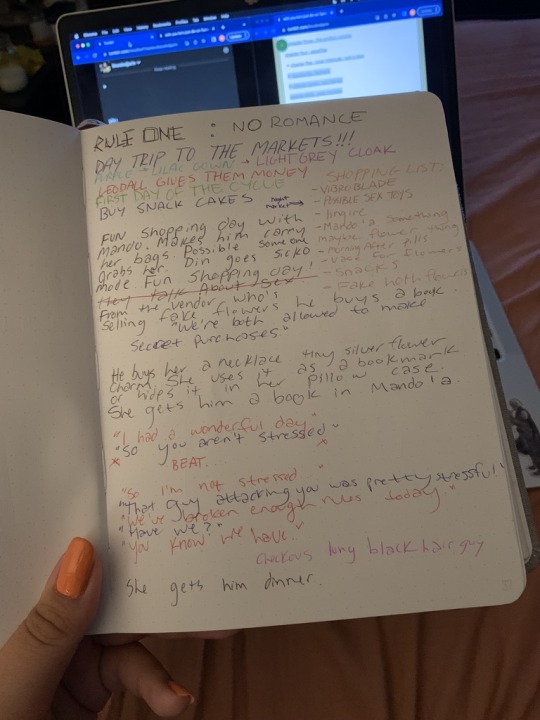 RULE ONE : NO ROMANCE
DAY TRIP TO THE MARKETS!!!
LILAC GOWN → LIGHT GREY CLOAK
GIVES THEM MONEY
FIRST DAY OF THE CYCLE
BUY SNACK CAKES
SHOPPING LIST:
- VIBROBLADE
- POSIBLE SEX TOYS
- lingire
- Mando'a something
maybe flower thing
- Morning After Pills
- for flowers
- Snacks
- Fake hoth flowers
FUN Shopping day with
Mando. Makes him carry
her bags. Possible someone
Grabs her. Din goes sicko
mode Fun Shopping day!
They talk About Sex
From the vendor who's
selling fake flowers he buys a book.
"We're both allowed to make
Secret purchases"
He buys her a necklace. tiny silver flower
Charm. She uses it as a bookmark
or hides it in her pillow case.
She gets him a book in Mando'a.
"I had a wonderful day"
"So you aren't stressed"
BEAT...
"So I'm not stressed"
"That guy attacking you was pretty stressful"
"We've broken enough rules today"
"Have we?"
"You know we have."
long black hair guy
She gets him dinner.